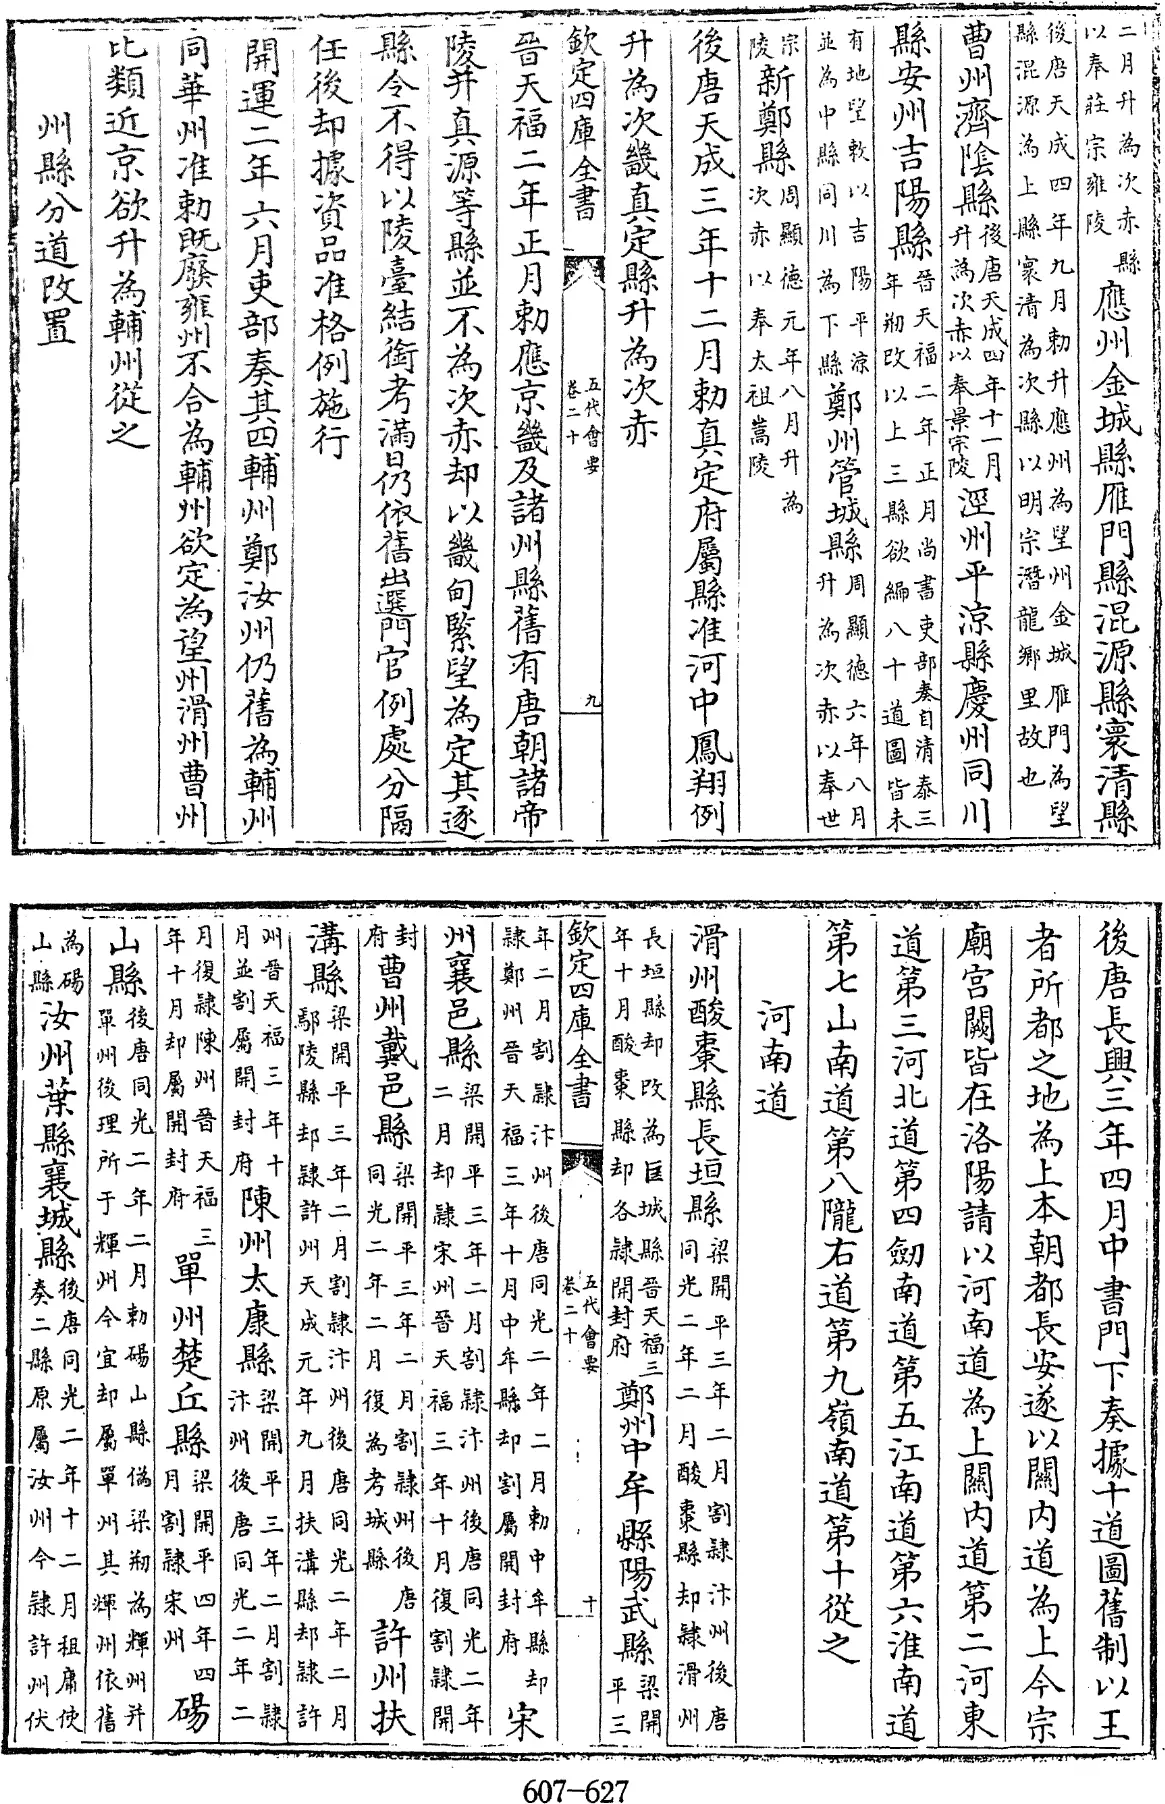 二月升為次赤縣
以奉莊宗雍陵
應州金城縣雁門縣混源縣寰清縣
後唐天成四年九月勅升應州為望州金城雁門為望
縣混源為上縣寰清為次縣以明宗潛龍鄉里故也
曹州濟陰縣
後唐天成四年十一月
升為次赤以奉景宗陵
涇州平涼縣慶州同川
縣安州吉陽縣
晉天福二年正月尚書吏部奏自清泰三
年朔改以上三縣欲編八十道圖皆未
有地望敕以吉陽平涼
並為中縣同川為下縣
鄭州管城縣
周顯德六年八月
升為次赤以奉世
宗
陵
新鄭縣
周顯德元年八月升為
次赤以奉太祖嵩陵
後唐天成三年十二月勅真定府屬縣准河中鳳翔例
升為次畿真定縣升為次赤
欽定四庫全書
五代會要
卷二十
九
晉天福二年正月勅應京畿及諸州縣舊有唐朝諸帝
陵并真源等縣並不為次赤却以畿甸緊望為定其逐
縣令不得以陵臺結銜考滿日仍依舊出選門官例處分隔
任後却據資品准格例施行
開運二年六月吏部奏其四輔州鄭汝州仍舊為輔州
同華州准勅既廢雍州不合為輔州欲定為望州滑州曹州
比類近京欲升為輔州從之
州縣分道改置
後唐長興三年四月中書門下奏據十道圖舊制以王
者所都之地為上本朝都長安遂以關內道為上今宗
廟宮闕皆在洛陽請以河南道為上關內道第二河東
道第三河北道第四劒南道第五江南道第六淮南道
第七山南道第八隴右道第九嶺南道第十從之
河南道
滑州酸棗縣長垣縣
梁開平三年二月割隷汴州後唐
同光二年二月酸棗縣却隷滑州
長垣縣却改為匡城縣晉天福三
年十月酸棗縣却各隷開封府
鄭州中牟縣陽武縣
梁開
平三
欽定四庫全書
五代會要
卷二十
十
年二月割隷汴州後唐同光二年二月勅中牟縣却
隷鄭州晉天福三年十月中牟縣却割屬開封府
宋
州襄邑縣
梁開平三年二月割隷汴州後唐同光二年
二月却隷宋州晉天福三年十月復割隷開
封
府
曹州戴邑縣
梁開平三年二月割隷州後唐
同光二年二月復為考城縣
許州扶
溝縣
梁開平三年二月割隷汴州後唐同光二年二月
鄢陵縣却隷許州天成元年九月扶溝縣却隷許
州晉天福三年十
月並割屬開封府
陳州太康縣
梁開平三年二月割隷
汴州後唐同光二年二
月復隷陳州晉天福三
年十月却屬開封府
單州楚丘縣
梁開平四年四
月割隷宋州
碭
山縣
後唐同光二年二月勅碭山縣偽梁朔為輝州并
單州後理所于輝州今宜却屬單州其輝州依舊
為碭
山縣
汝州葉縣襄城縣
後唐同光二年十二月租庸使
奏二縣原屬汝州今隷許州伏
607-627